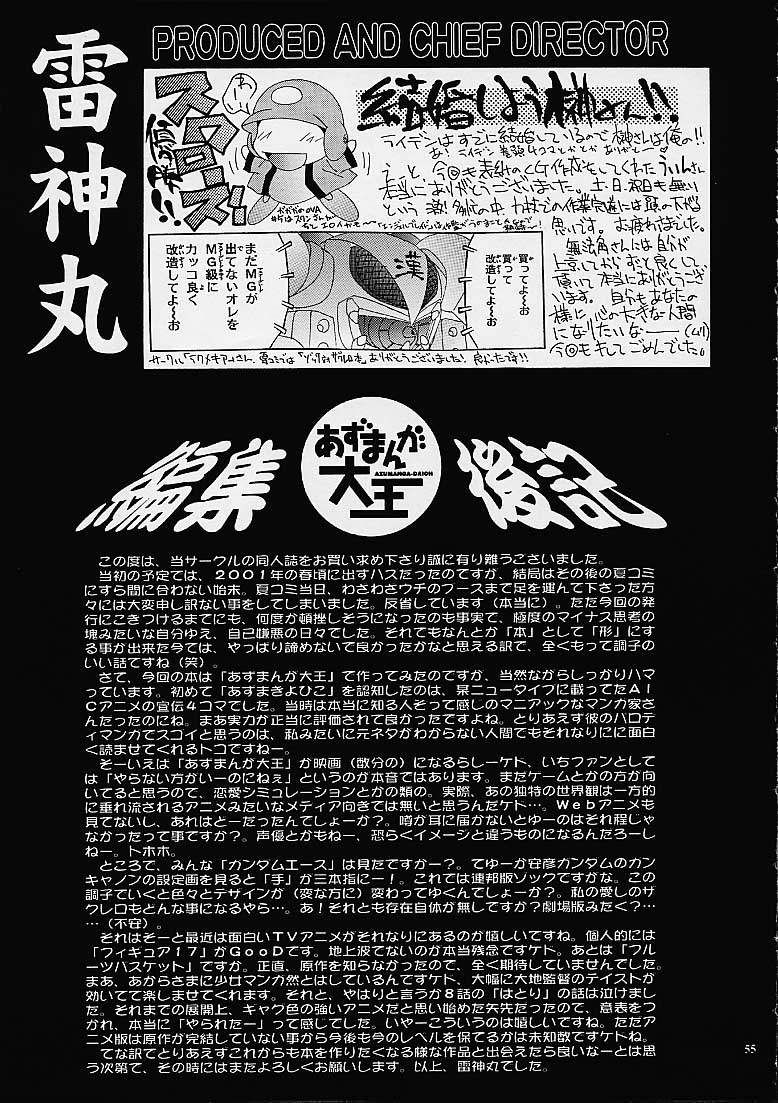 PRODUCED AND CHIEF DIRECTOR
雷神丸
結婚しよう榊さん!!
ライデンはすでに結婚しているので榊さんは俺の!!
えーと、今回表紙のCG作業をしてくれたういんさん
本当にありがとうございました。土・日、祝日も無い
思いです。お疲れさまでした。
買ってよ〜お
買って
改造してよ〜お
漢
まだMGが
出てないオレを
MG級に
カッコ良く
改造してよ〜お
あずまんが
AZUMANGA-DAIOH
大王
編集後記
この度は、当サークルの同人誌をお買い求め下さり誠に有り難うございました。
当初の予定では、2001年の春頃に出すハズだったのですが、結局はその後の夏コミ
にすら間に合わない始末。夏コミ当日、わざわざウチのブースまで足を運んで下さった方
々には大変申し訳ない事をしてしまいました。反省しています(本当に)。ただ今回の発
行にこぎつけるまでにも、何度か頓挫しそうになったのも事実で、極度のマイナス思考の
塊みたいな自分ゆえ、自己嫌悪の日々でした。それでもなんとか「本」として「形」にす
る事が出来た今では、やっぱり諦めないで良かったかなと思える訳で、全くもって調子の
いい話ですね(笑)。
さて、今回の本は「あずまんが大王」で作ってみたのですが、当然ながらしっかりハマ
っています。初めて「あずまきよひこ」を認知したのは、某ニュータイプに載ってたAI
Cアニメの宣伝4コマでした。当時は本当に知る人ぞって感じのマニアックなマンガ家さ
んだったのにね。まあ実力が正当に評価されて良かったですよね。とりあえず彼のパロデ
ィマンガでスゴイと思うのは、私みたいに元ネタがわからない人間でもそれなりにに面白
く読ませてくれるトコですねー。
そーいえば「あずまんが大王」が映画(数分の)になるらしーケド、いちファンとして
は「やらない方がいーのにねぇ」というのが本音ではあります。まだゲームとかの方が向
いてると思うので、恋愛シミュレーションとかの類の。実際、あの独特の世界観は一方的
に垂れ流されるアニメみたいなメディア向きでは無いと思うんだケド…。Webアニメも
見てないし、あれはどーだったんでしょーか?。噂が耳に届かないとゆーのはそれ程じゃ
なかったって事ですか?。声優とかもねー、恐らくイメージと違うものになるんだろーし
ねー。トホホ。
ところで、みんな「ガンダムエース」は見たですかー?。てゆーか安彦ガンダムのガン
キャノンの設定画を見ると「手」が三本指にー!。これでは連邦版ゾックですがな。この
調子でいくと色々とデザインが(変な方に)変わってゆくんでしょーか?。私の愛しのザ
クレロもどんな事になるやら…。あ!それとも存在自体が無しですか?劇場版みたく?…
……(不安)。
それはそーと最近は面白いTVアニメがそれなりにあるのが嬉しいですね。個人的には
「フィギュア17」がGooDです。地上波でないのが本当残念ですケド。あとは「フル
ーツバスケット」ですか。正直、原作を知らなかったので、全く期待していませんでした。
まあ、あからさまに少女マンガ然とはしているんですケド、大幅に大地監督のテイストが
効いてて楽しませてくれます。それと、やはりと言うか8話の「はとり」の話は泣けまし
た。それまでの展開上、ギャグ色の強いアニメだと思い始めた矢先だったので、意表をつ
かれ、本当に「やられたー」って感じでした。いやーこういうのは嬉しいですね。ただア
ニメ版は原作が完結していない事から今後も今のレベルを保てるかは未知数ですケドね。
てな訳でとりあえずこれからも本を作りたくなる様な作品と出会えたら良いなーとは思
う次第で、その時にはまたよろしくお願いします。以上、雷神丸でした。
55